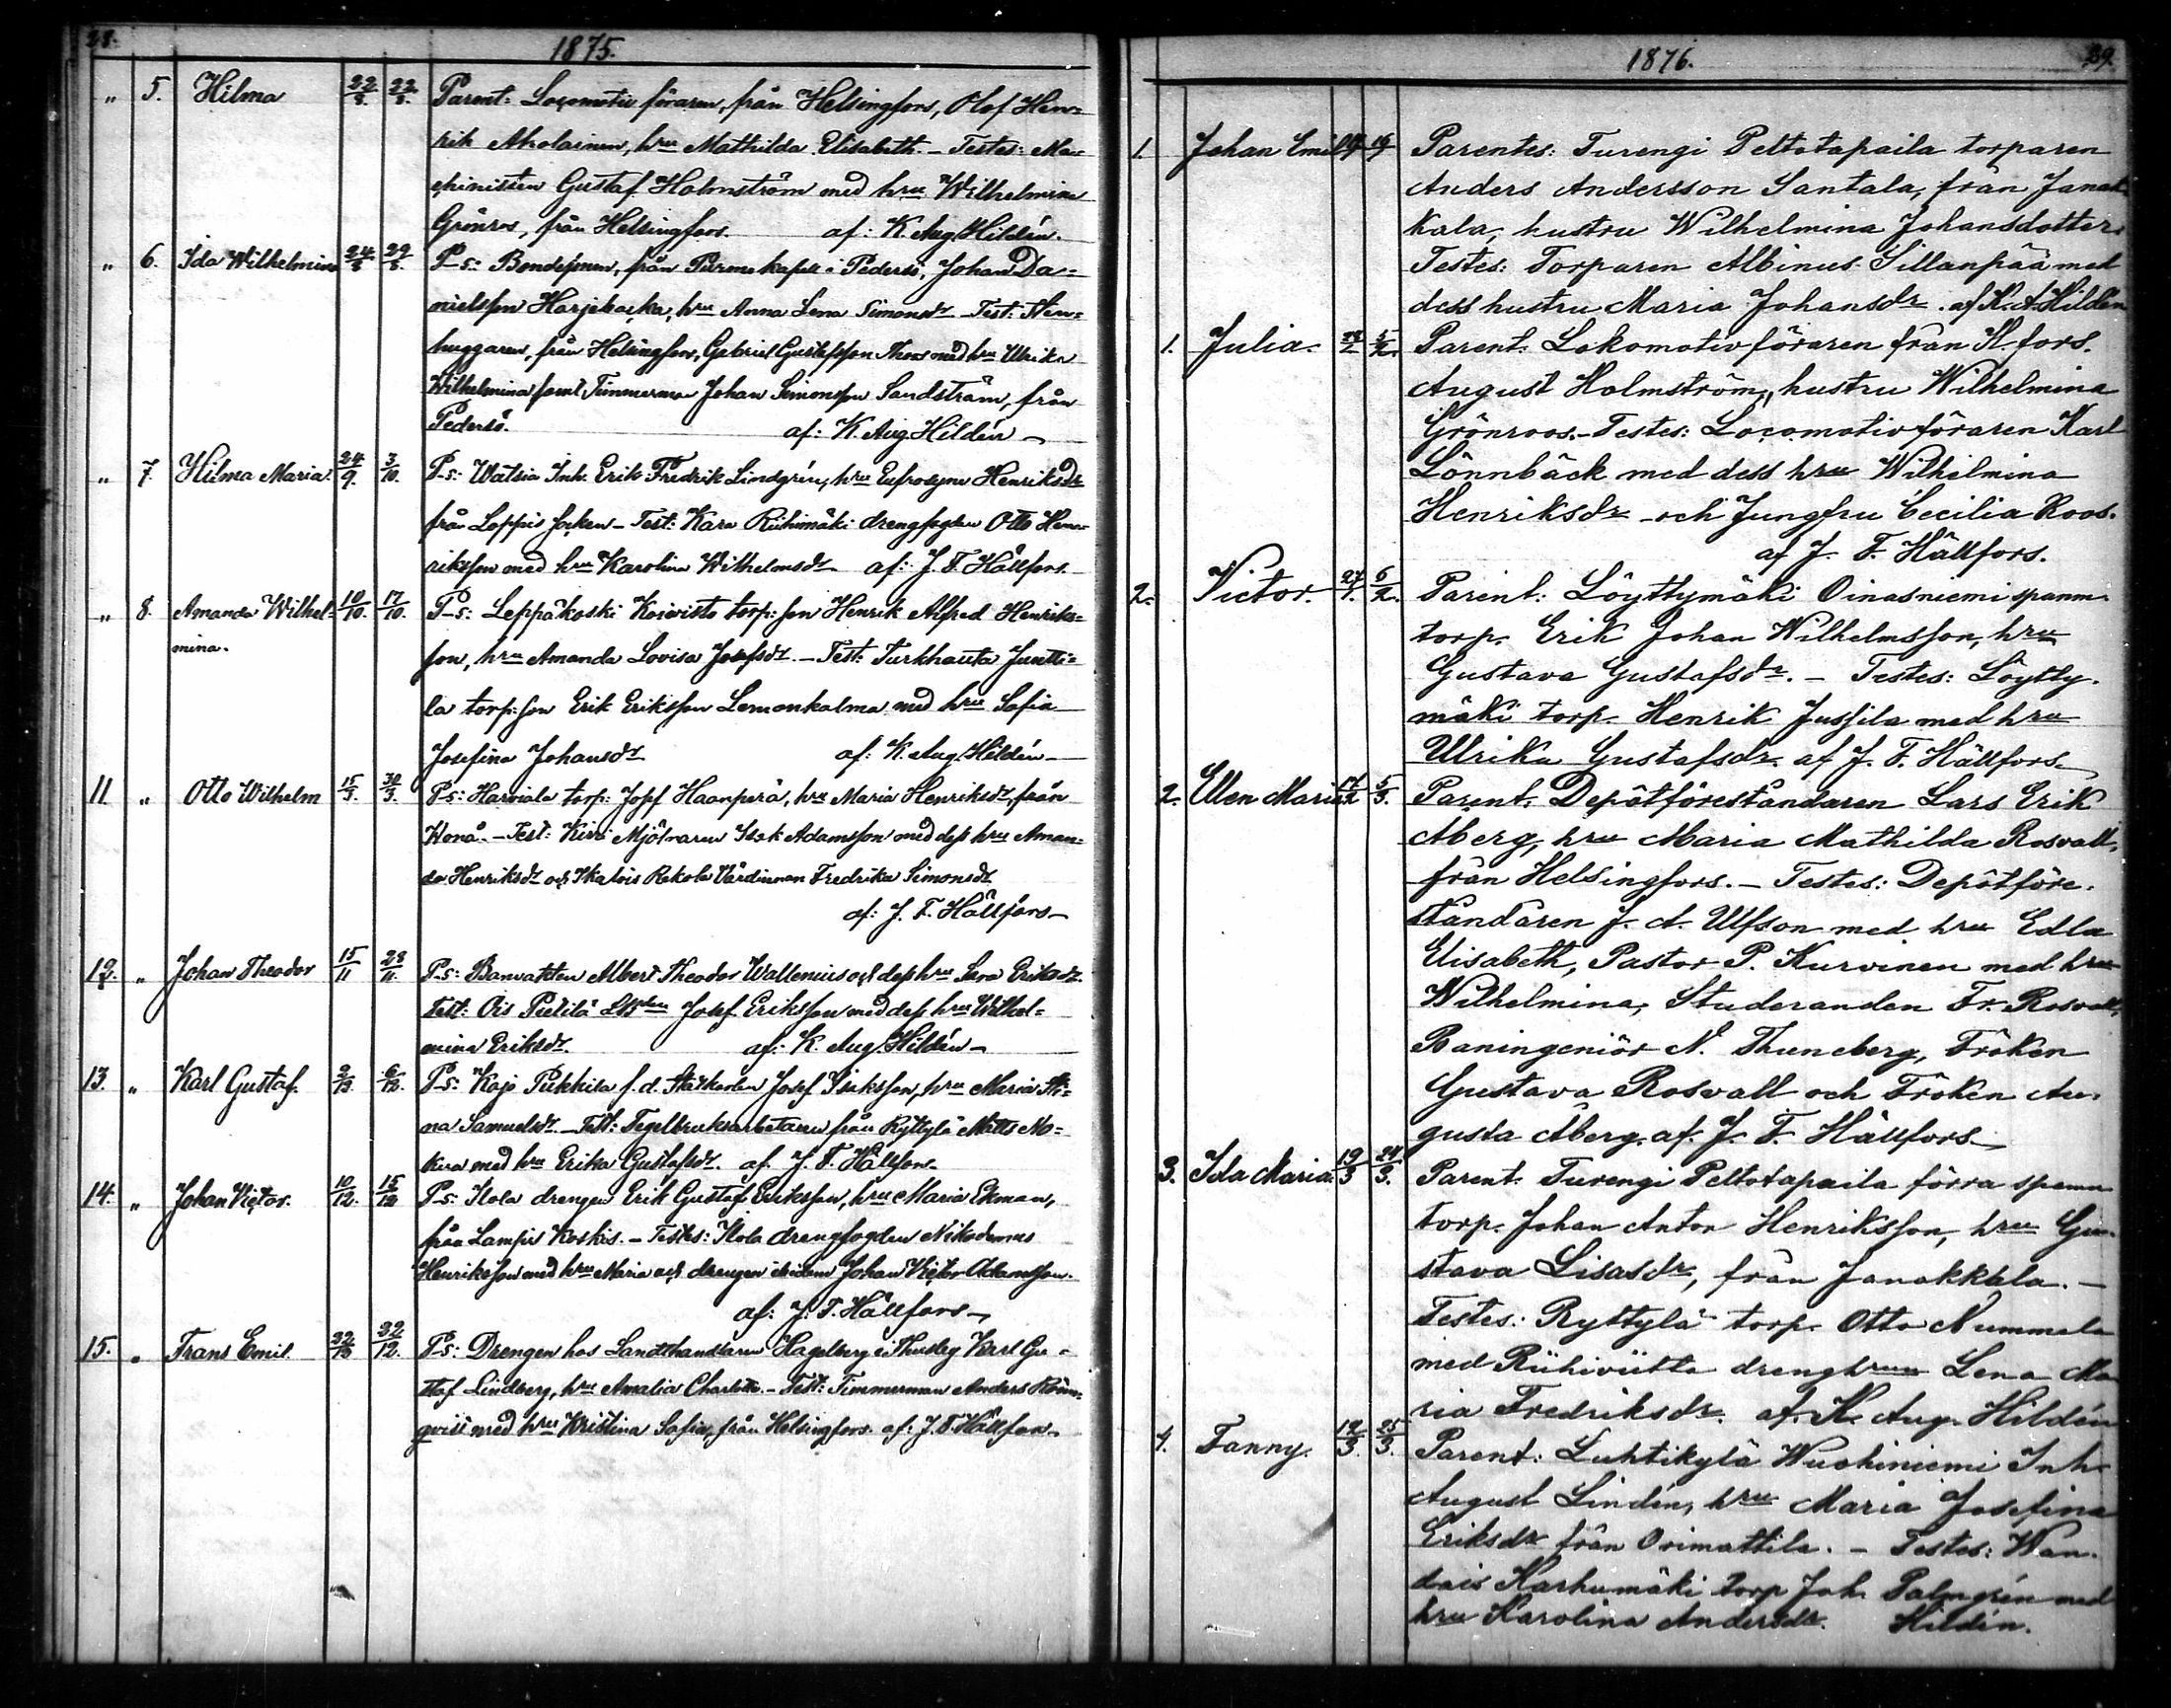 28.
1875.
" 5. Hilma 22/8. 22/8. Parent: Locomotiv föraren, från Helsingfors, Olof Hen=
rik Aholainen, hru Mathilda Elisabeth. – Testes: Ma=
chinisten Gustaf Holmström med hru Wilhelmina
Grönros, från Helsingfors. af: K. Aug. Hildén.
" 6. Ida Wilhelmina 24/8 29/8. P–s: Bondesonen, från Purmo kapell i Pedersö, Johan Da=
nielsson Harjekacka, hru Anna Lena Simonsdr – Test: Sten=
huggaren, från Helsingfors, Gabriel Gustafsson med hru Ulrika
Wilhelmina samt Timmerman Johan Simonsson Sandström, från
Pedersö. af: K. Aug. Hildén –
" 7. Hilma Maria. 24/9. 3/10. P–s: Watsia Inh. Erik Fredrik Lindgrén, hru Eufrosyne Henriksdr
från Loppis socken – Test: Kara Riihimäki drengfogden Otto Hen=
riksson med hru Karolina Wilhelmsdr af: J. F. Hällfors.
" 8. Amanda Wilhel= 10/10. 17/10. P–s: Leppäkoski Koivisto torp: son Henrik Alfred Henriks=
mina.
son, hru Amanda Lovisa Josefsdr. – Test: Turkhauta Juntti=
la torp: son Erik Eriksson Lemonkalma med hru Sofia
Josefina Johansdr af: K. Aug. Hildén –
11. " Otto Wilhelm 15/3. 30/3. P–s: Harviala torp: Josef Haanperä, hru Maria Henriksdr, från
Wonå. – Test: Mjölnaren Isak Adamsson med dess hru Aman=
da Henriksdr och Rekola Värdinnan Fredrika Simonsdr
af: J. F. Hällfors –
12. " Johan Theodor 15/11 28/11. P–s: Banvakten Albert Theodor Wallenius och dess hru Sara Eriksdr.
Test: Ois Pietilä Josef Eriksson med dess hru Wilhel=
mina Eriksdr. af: K. Aug. Hildén –
13. " Karl Gustaf. 2/12. 6/12. P–s: Kojo Pukkila f. d. Josef Isaksson, hru Maria Sti=
na Samuelsdr. – Test: Tegelbruksarbetaren från Ryttylä Matts No=
kua med hru Erika Gustafsdr. af. J. F. Hällfors.
14. " Johan Victor. 10/12. 15/12 P–s: Ilola drengen Erik Gustaf Eriksson, hru Maria Ekman,
från Lampis Koskis. – Testes: Ilola drengfogden Nikodemus
Henriksson med hru Maria och drengen ibidem Johan Victor Adamsson.
af: J. F. Hällfors –
15. " Frans Emil. P–s: Drengen hos Landthandlaren Hagelberg i Thusby Karl Gu=
staf Lindberg, hru Amalia Charlotta. – Test: Timmerman Anders Rönn=
qvist med hru Kristina Sofia, från Helsingfors. af: J. F. Hällfors.
1876.
29.
1. Johan Emil Parentes: Turengi Peltotapaila torparen
Anders Andersson Santala, från Janak
kala, hustru Wilhelmina Johansdotter.
Testes: Torparen Albinus Sillanpää med
dess hustru Maria Johansdr. af K. A. Hildén
1. Julia. Parent. Lokomotivföraren från H.fors.
August Holmström, hustru Wilhelmina
Grönroos. – Testes: Locomotivföraren Karl
Lönnbäck med dess hru Wilhelmina
Henriksdr och Jungfru Cecilia Roos.
af J. F. Hällfors.
2. Victor. 27/1. 6/2. Parent: Löyttymäki Oinasniemi spanm.
torp. Erik Johan Wilhelmsson, hru
Gustava Gustafsdr. – Testes: Löytty.
mäki torp. Henrik Jussila med hru
Ulrika Gustafsdr. af J. F. Hällfors.
2. Ellen Maria 17/2 5/3. Parent. Depôtföreståndaren Lars Erik
Åberg, hru Maria Mathilda Rosvall,
från Helsingfors. – Testes: Depôtföre.
ståndaren J. A. Ulfson med hru Edla
Elisabeth, Pastor P. Kurvinen med hru
Wilhelmina, Studeranden Fr. Rosvall,
Baningeniör N. Thuneberg, Fröken
Gustava Rosvall och Fröken Au.
gusta Åberg. af. J. F. Hällfors –
3. Ida Maria. 19/3 24/3. Parent. Turengi Peltotapaila förra spanm
torp. Johan Anton Henriksson, hru Gu.
stava Lisasdr, från Janakkala. –
Testes: Ryttylä torp. Otto Nummela
med Riihiviitta drenghrun Lena Ma
ria Fredriksdr. af. K. Aug. Hildén
4. Fanny. 12/3. 25/3. Parent: Luhtikylä Wuohiniemi Inh.
August Lindén, hru Maria Josefina
Eriksdr från Orimattila. – Testes: Wan.
dais Karhumäki torp Joh. Palmgrén med
hru Karolina Andersdr. Hildén.